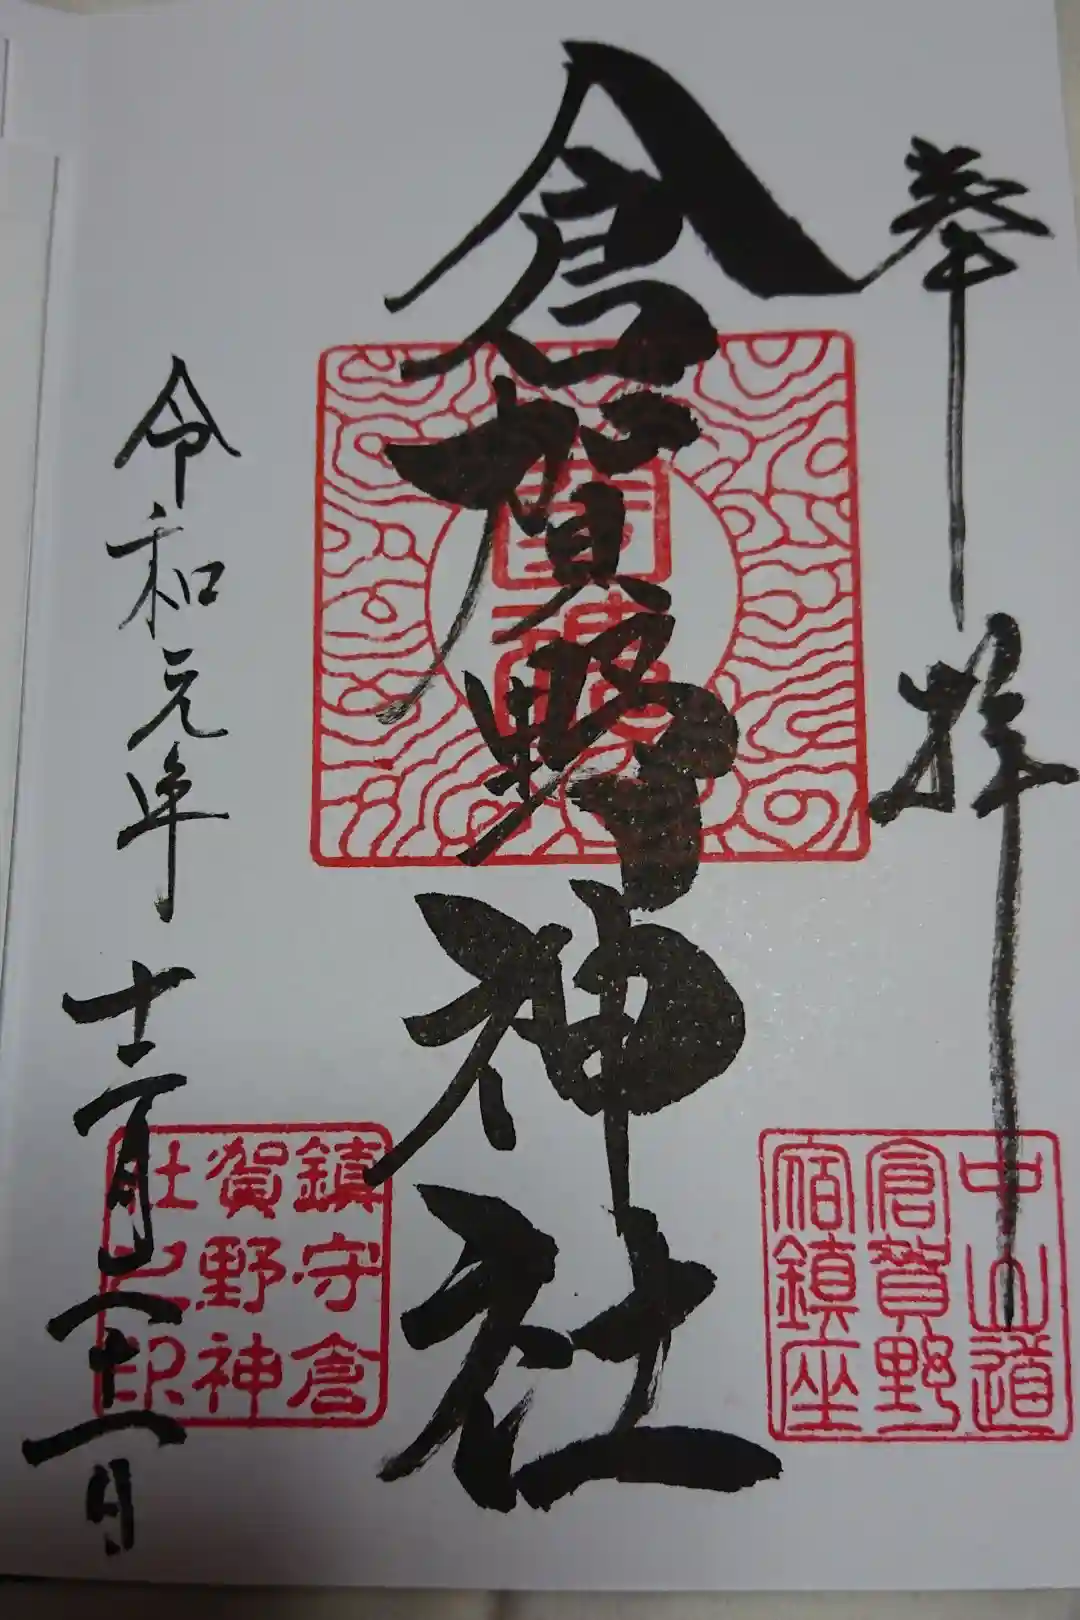 奉拝
中山道
倉賀野
宿鎮座
倉賀野神社
鎮守倉
賀野神
社之印
令和元年十二月二十一日